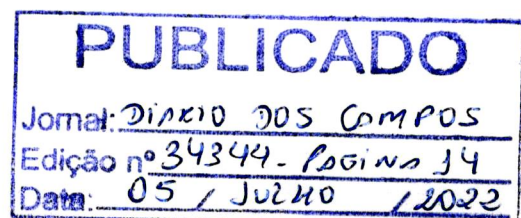 PUBLICADO
Jornal: DIARIO DOS CAMPOS
Edição nº 34344 - PAGINA 14
Data: 05 / JULHO / 2022